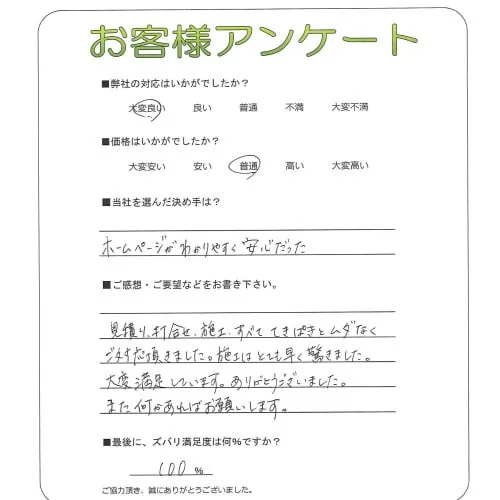 お客様アンケート
■弊社の対応はいかがでしたか？
大変良い 良い 普通 不満 大変不満
■価格はいかがでしたか？
大変安い 安い 普通 高い 大変高い
■当社を選んだ決め手は？
ホームページがわかりやすく安心だった
■ご感想・ご要望などをお書き下さい。
見積り、打合せ、施工、すべててきぱきとムダなく
ご対応頂きました。施工はとても早く驚きました。
大変満足しています。ありがとうございました。
また何かあればお願いします。
■最後に、ズバリ満足度は何%ですか？
100 %
ご協力頂き、誠にありがとうございました。